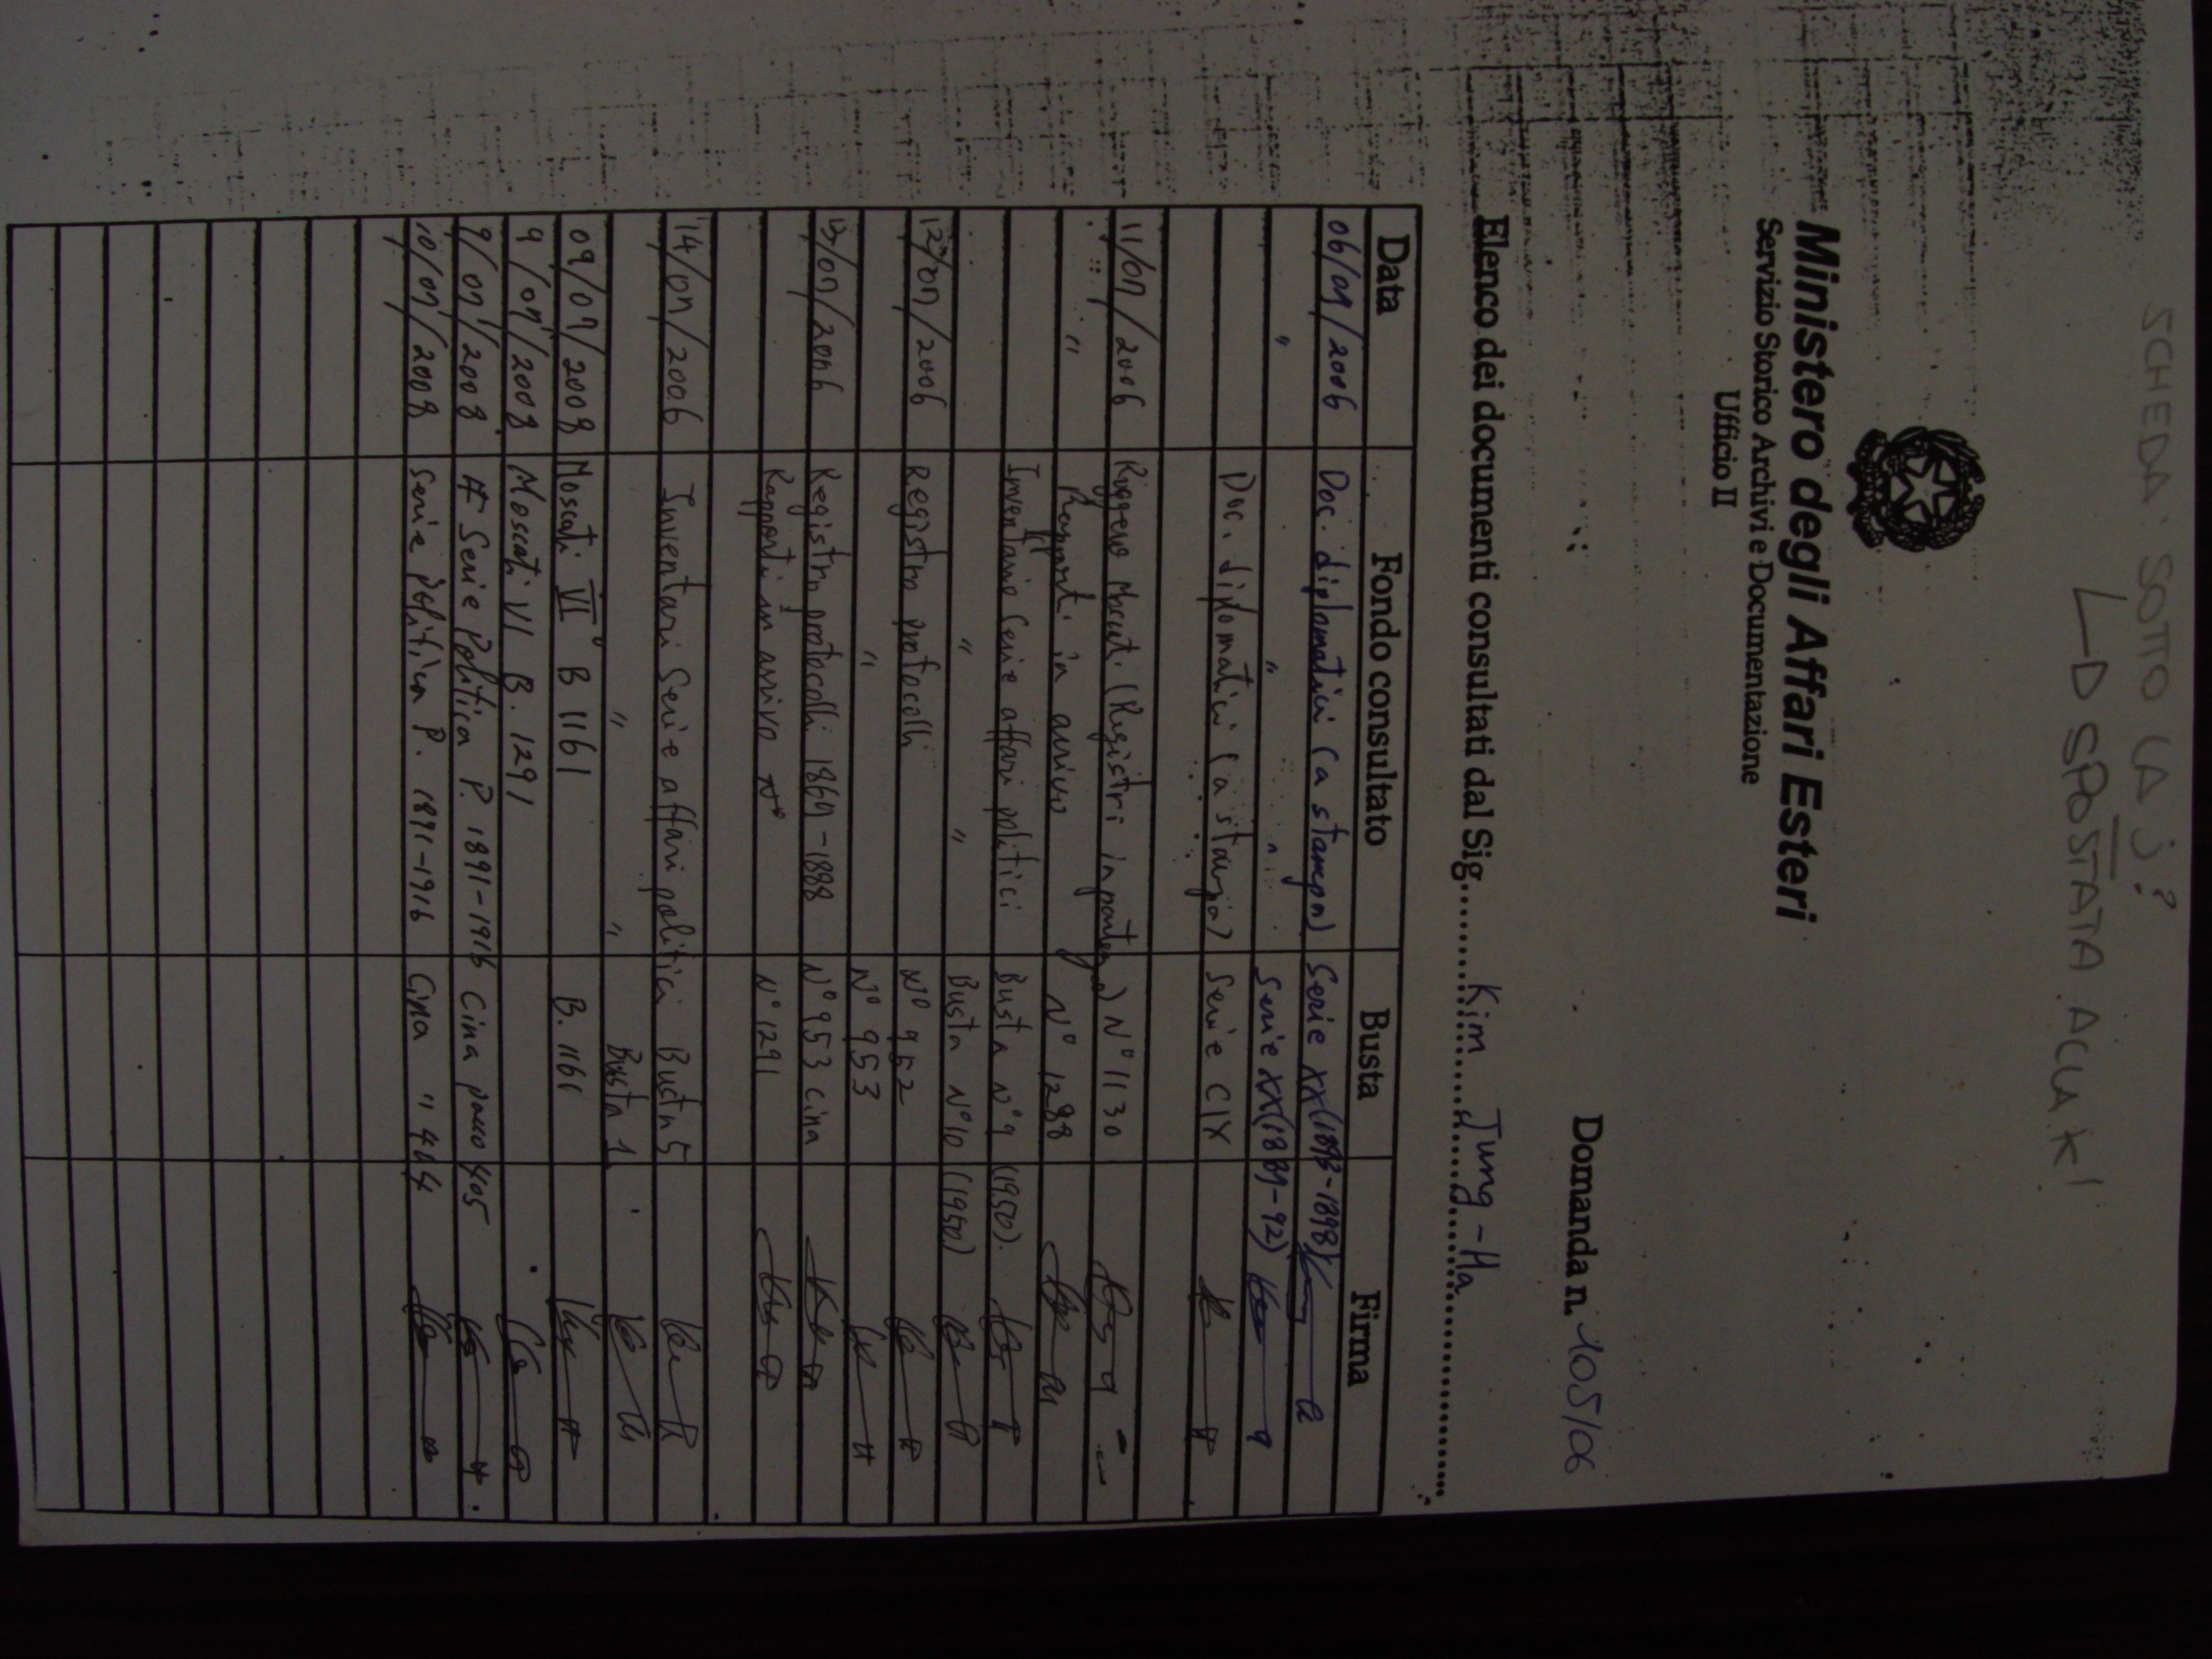 SCHEDA SOTTO LA J?
SPOSTATA ALLA K!
Ministero degli Affari Esteri
Servizio Storico Archivi e Documentazione
Ufficio II
Domanda n. 105/06
Elenco dei documenti consultati dal Sig. Kim Jung-Ha
Data Fondo consultato Busta Firma
06/07/2006 Doc. diplomatici (a stampa) Serie XX (1893-1898)
" " " Serie XX (1889-92)
Doc. diplomatici (a stampa) Serie CIX
11/07/2006 Ruggero Moscati (Registri in partenza) N° 1130
" Rapporti in arrivo N° 1288
Inventario Serie affari politici Busta N° 9 (1950).
" " Busta N° 10 (1950)
12/07/2006 Registro protocolli N° 952
" N° 953
13/07/2006 Registro protocolli 1867-1888 N° 953 Cina
Rapporti in arrivo N° N° 1291
14/07/2006 Inventari Serie affari politici Busta 5
" " Busta 1
09/07/2008 Moscati VI° B 1161 B. 1161
9/07/2008 Moscati VI B. 1291
9/07/2008 Serie Politica P. 1891-1916 Cina pacco 405
10/07/2008 Serie Politica P. 1891-1916 Cina " 404